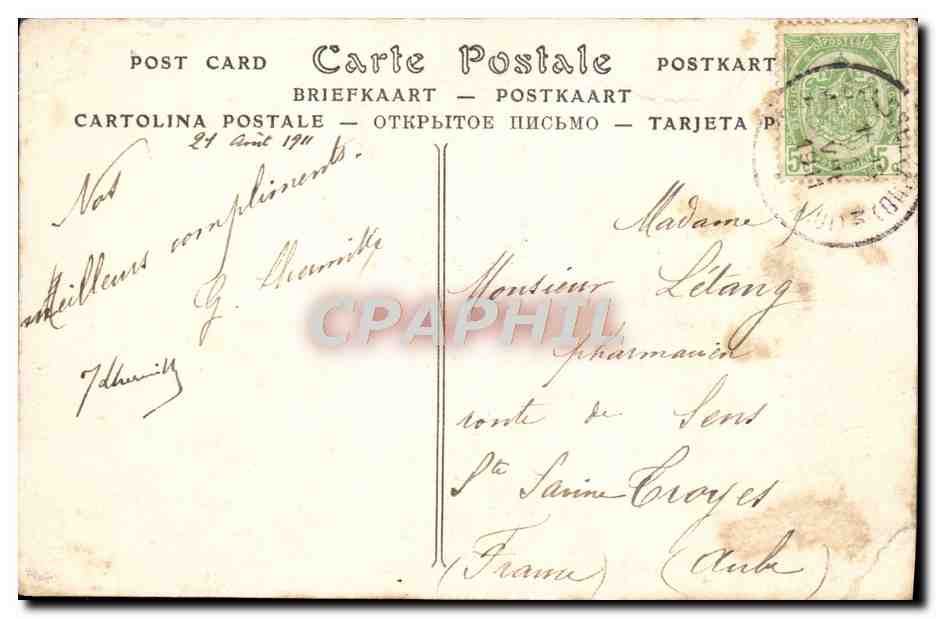 POST CARD Carte Postale POSTKART
BRIEFKAART — POSTKAART
CARTOLINA POSTALE — ОТКРЫТОЕ ПИСЬМО — TARJETA P
21 Août 1911
Nos
Meilleurs compliments.
G. Lhermitte
J Lhermitte
Madame &
Monsieur Létang
pharmacien
route de Sens
Ste Savine Troyes
(France) (Aube)
POSTES
5 5c
CPAPHIL